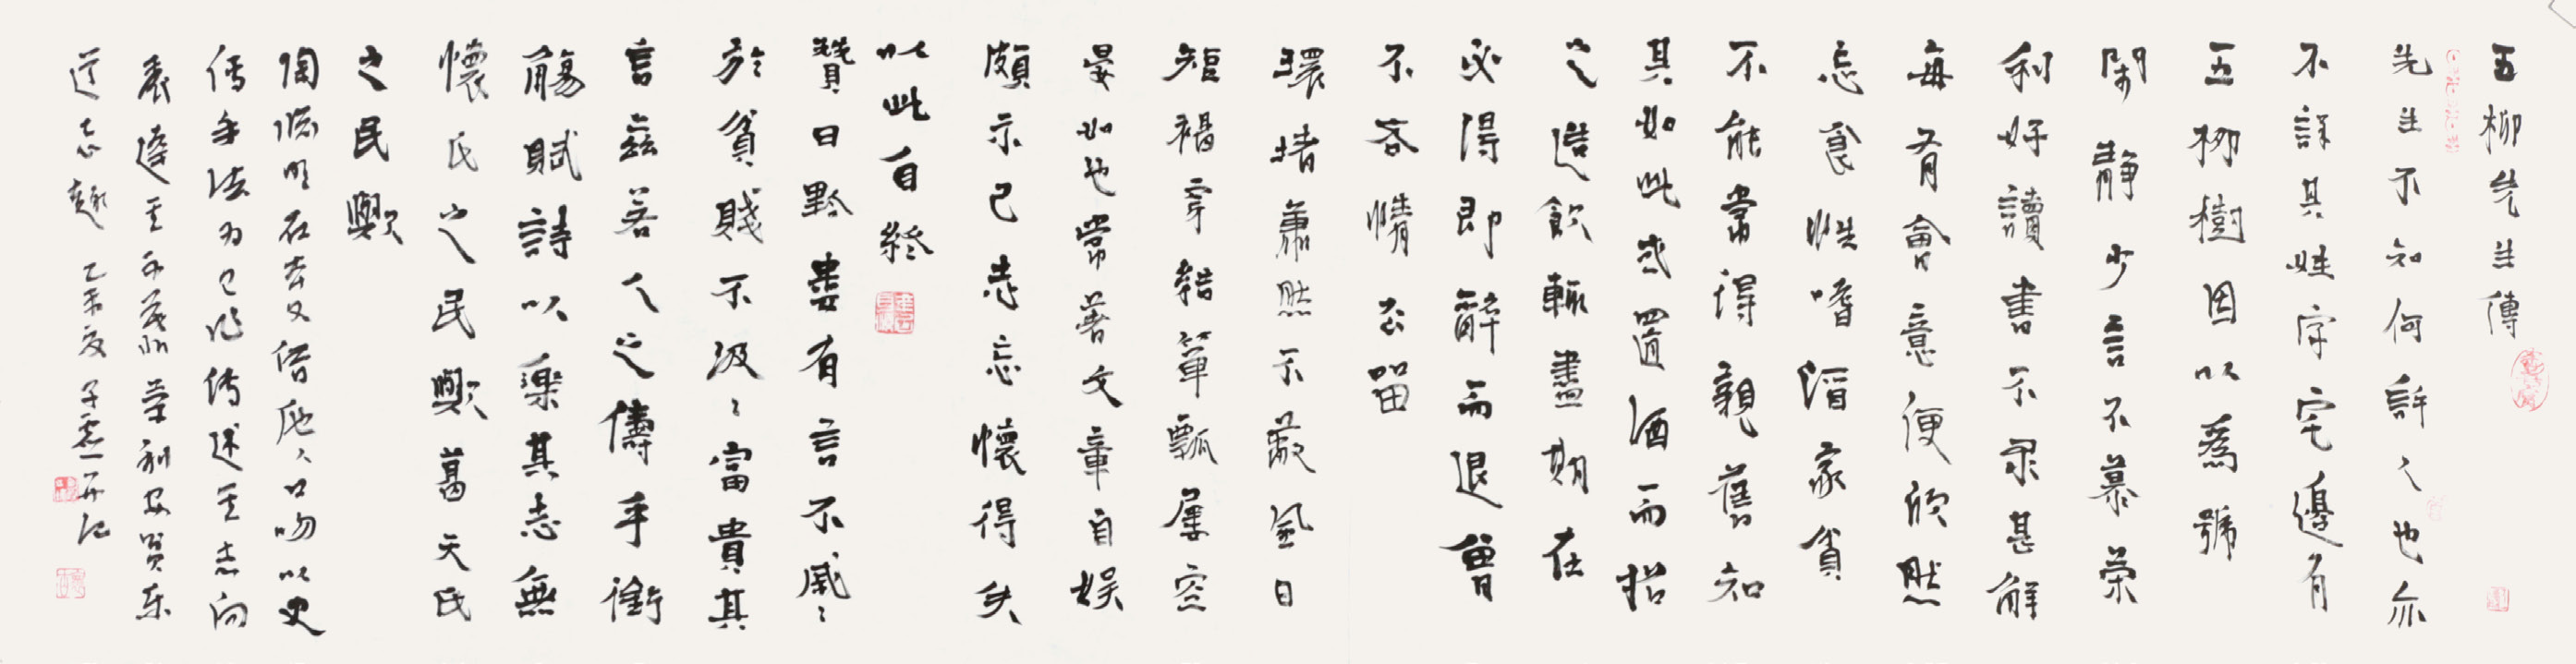 五柳先生傳
先生不知何許人也亦
不詳其姓字宅邊有
五柳樹因以為號
閑靜少言不慕榮
利好讀書不求甚解
每有會意便欣然
忘食性嗜酒家貧
不能常得親舊知
其如此或置酒而招
之造飲輒盡期在
必得即醉而退曾
不吝情去留
環堵蕭然不蔽風日
短褐穿結簞瓢屢空
晏如也常著文章自娛
頗示己志忘懷得失
以此自終
贊曰黔婁有言不戚〻
於貧賤不汲〻富貴其
言茲若人之儔乎銜
觴賦詩以樂其志無
懷氏之民歟葛天氏
之民歟
陶淵明在本文借他人口吻以史
傳手法為己作傳述其志向
表達其不慕榮利安貧樂
道志趣 乙未夏 子